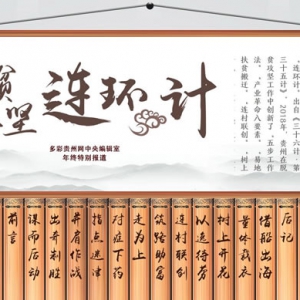 贫坚
连环计
多彩贵州网中央编辑室
年终特别报道
连环计,出自《三十六计》第
三十五计》。2018年,贵州在脱
贫攻坚工作中创新了,五步工作
法,产业革命八要素、易地
扶贫搬迁、连村联创、树上
前言
谋而后动
出奇制胜
并肩作战
指点迷津
对症下药
走为上
筑路助富
连村联创
以逸待劳
树上开花
量体裁衣
借船出海
后记